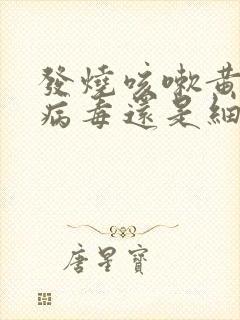 發燒咳嗽黃
病毒還是細
唐星寶